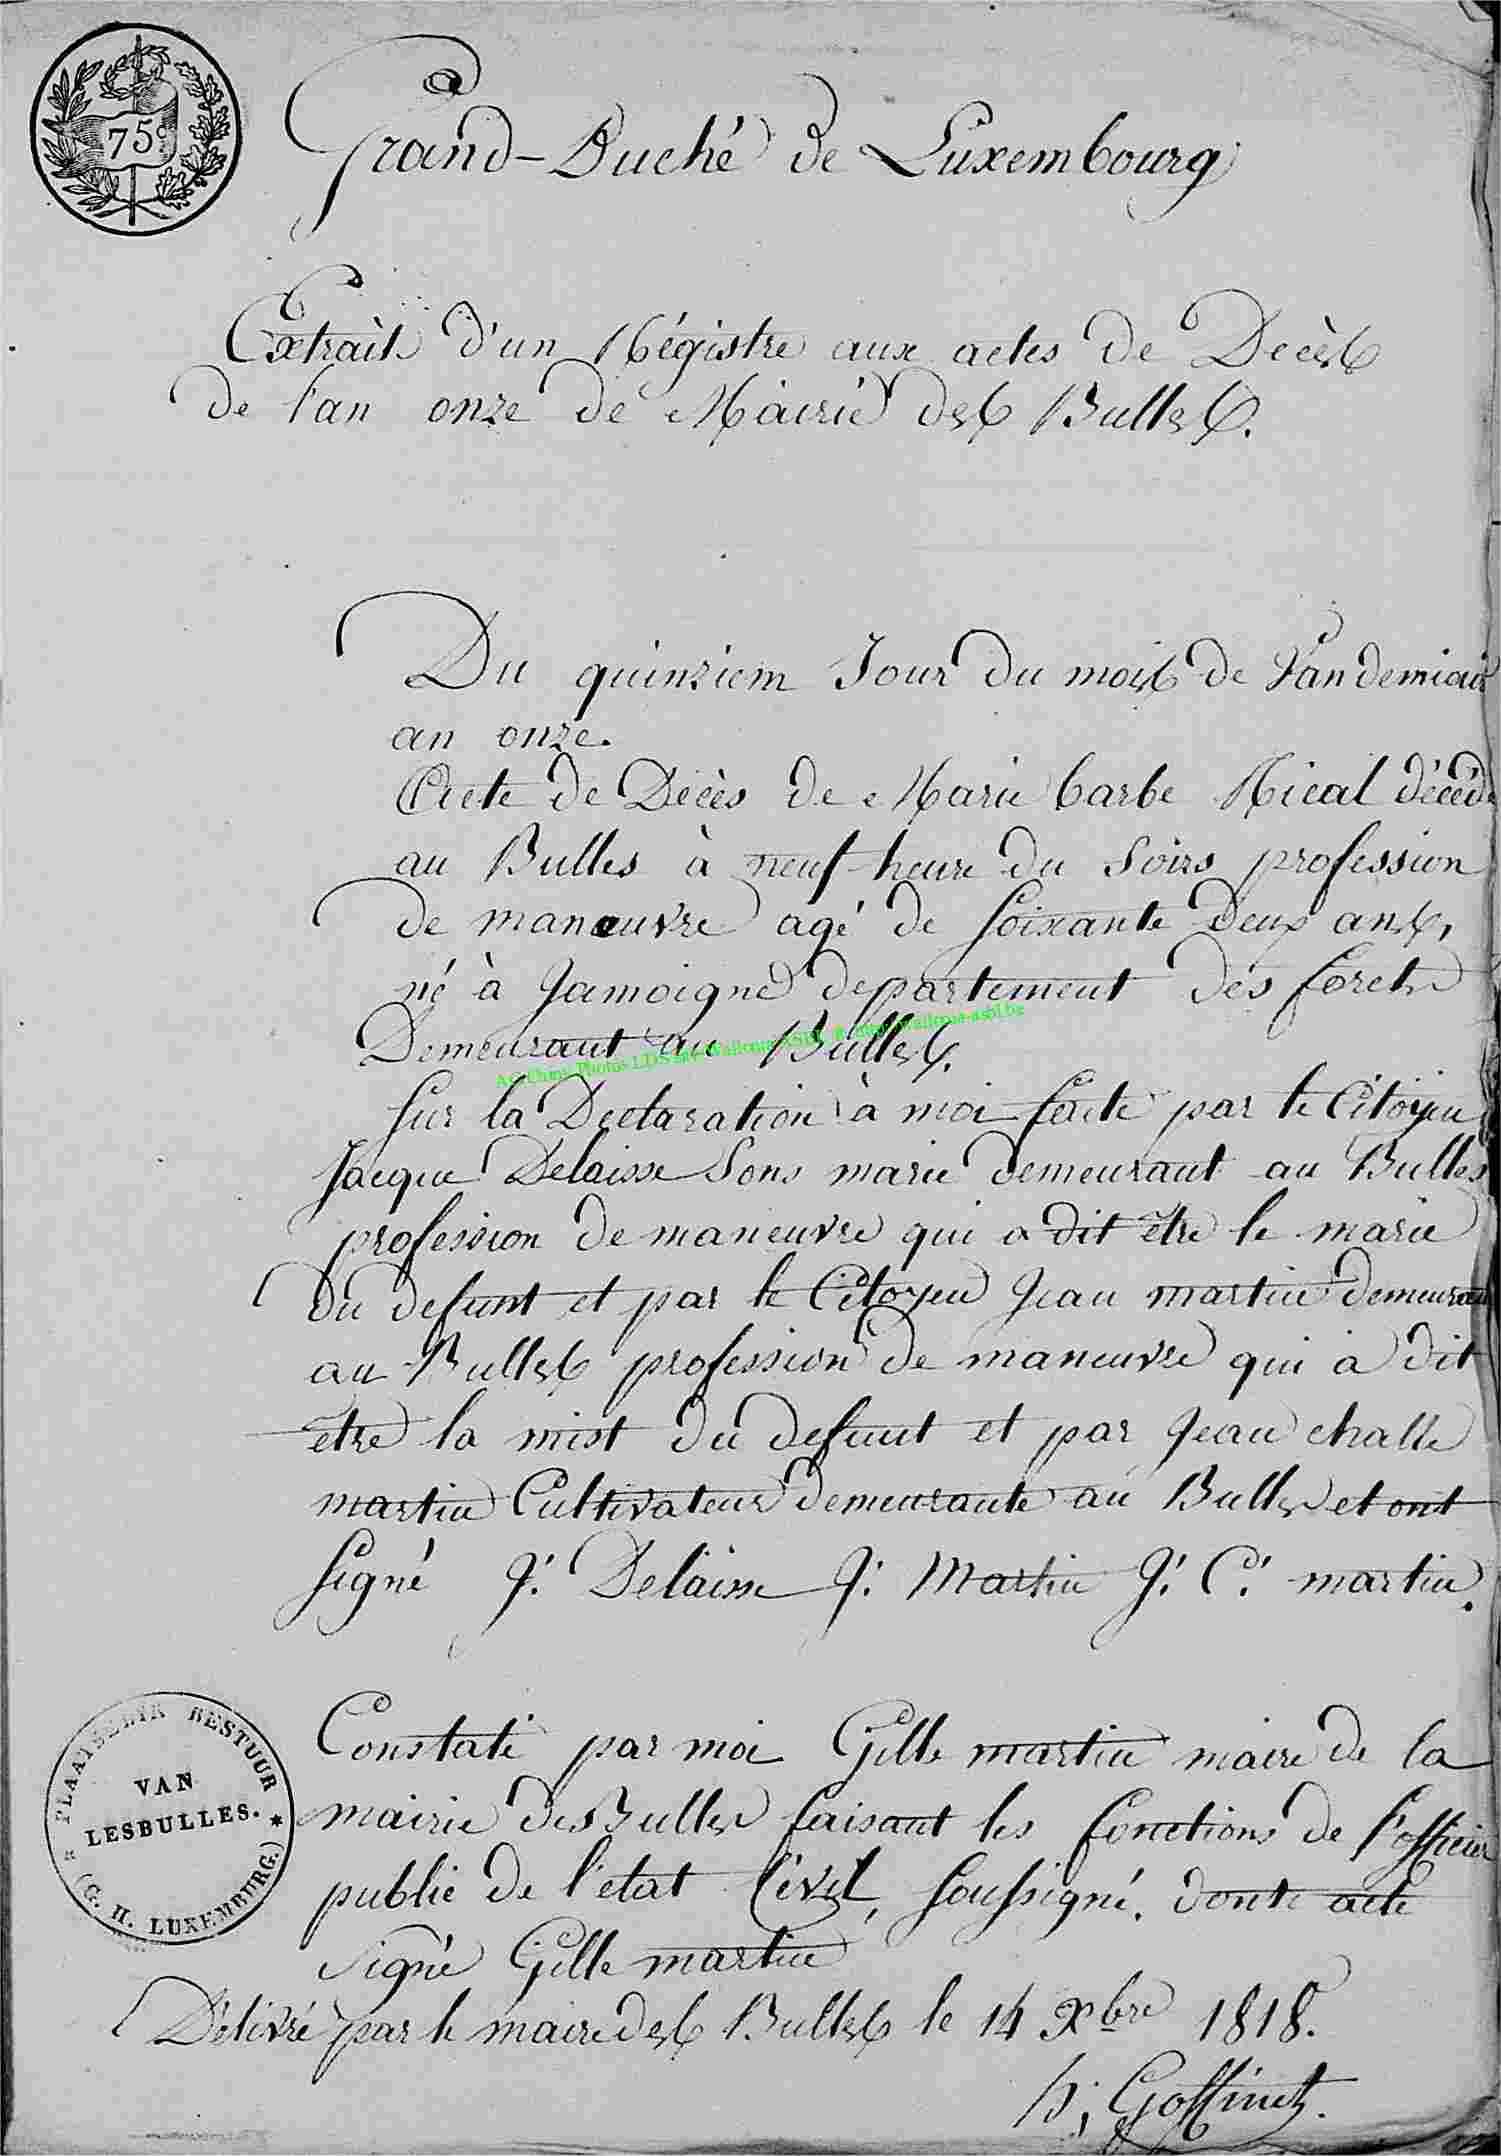 75c
Grand-Duché de Luxembourg
Extrait d'un Régistre aux actes de Decès
de l'an onze de Mairie des Bulles.
Du quinziem Jour du mois de Vandemiair
an onze.
Acte de Décès de Marie barbe décédé
au Bulles à neuf heure du Soirs profession
de manœuvre agé de Soixante deux ans,
né à Jamoigne departement des forets
Demeurant au Bulles.
Sur la Declaration à moi faite par le Citoyen
Jacque Delaisse Sons marie demeurant au Bulles
profession de maneuvre qui a dit etre le marie
du defunt et par le Citoyen Jean martin demeurant
au Bulles profession de maneuvre qui a dit
etre la mist du defunt et par Jean challe
martin Cultivateur demeurante au Bulles et ont
Signé J. Delaisse J. Martin J. C. martin.
Constaté par moi Gille martin maire de la
mairie des Bulles faisant les fonctions de l'officier
public de l'état Civil, Soussigné. dont acte
signé Gille martin
Délivré par le maire des Bulles le 14 Xbre 1818.
Goffinet.
PLAATSELYK BESTUUR
VAN
LESBULLES.
(G. H. LUXEMBURG.)